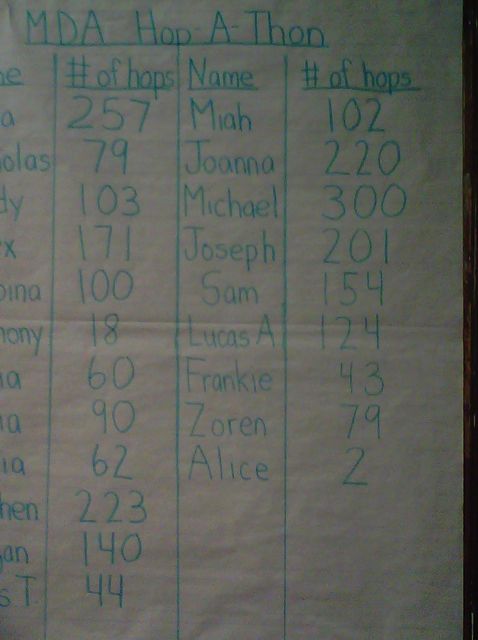 MDA Hop-A-Thon
# of hops Name # of hops
257 Miah 102
79 Joanna 220
103 Michael 300
171 Joseph 201
100 Sam 154
18 Lucas A 124
60 Frankie 43
90 Zoren 79
62 Alice 2
223
140
44